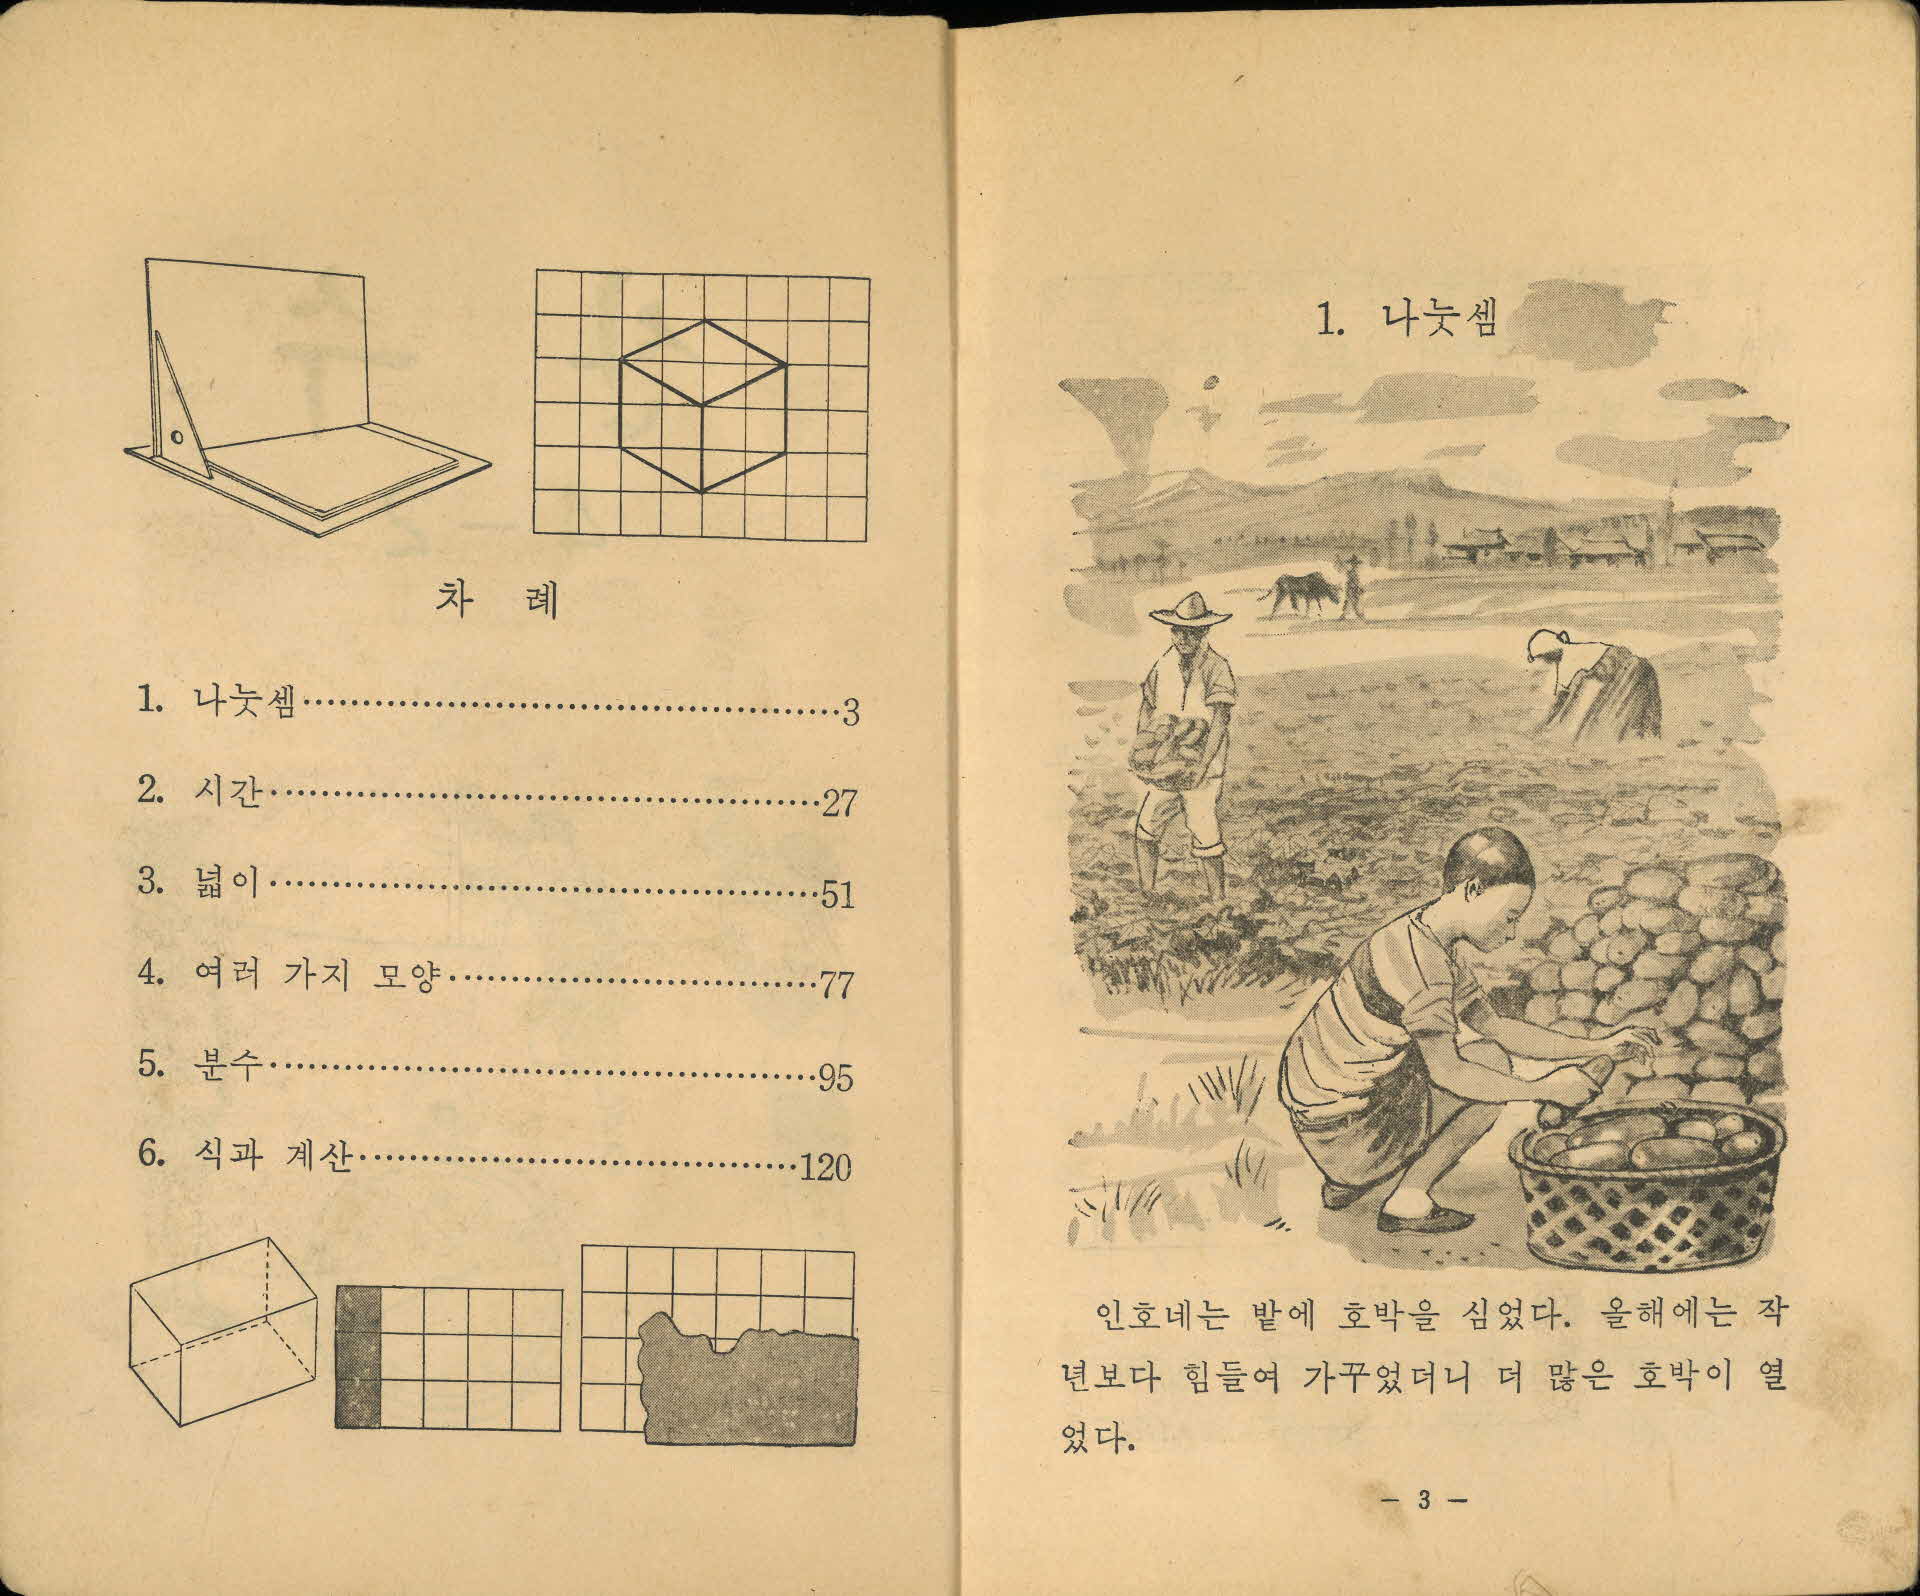 차 례
1. 나눗셈……………………………………3
2. 시간……………………………………27
3. 넓이……………………………………51
4. 여러 가지 모양……………………………77
5. 분수……………………………………95
6. 식과 계산………………………………120
1. 나눗셈
인호네는 밭에 호박을 심었다. 올해에는 작
년보다 힘들여 가꾸었더니 더 많은 호박이 열
었다.
— 3 —